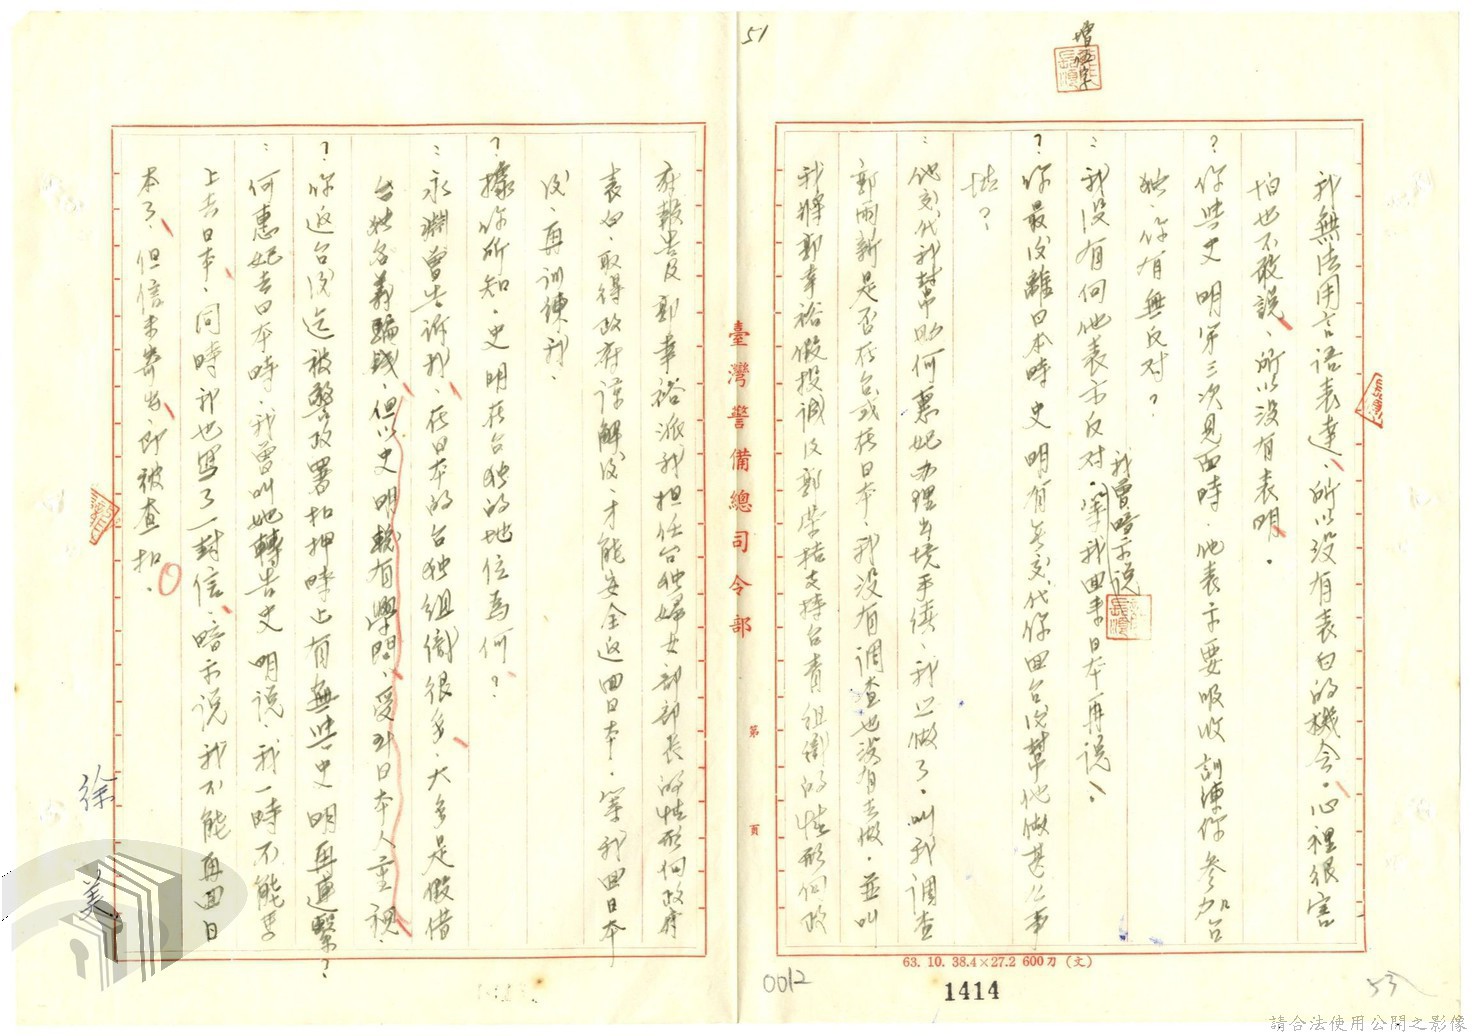 51
增伍字
我無法用言語表達、所以沒有表白的機会、心裡很害
怕也不敢說、所以沒有表明。
？你與史明第三次見面時、他表示要吸收訓練你參加台
独、你有無反对？
：我沒有向他表示反对、我曾暗示說等我回來日本再說、
？你最后離日本時史明有無交代你回台后幫他做甚么事
情？
：他交代我幫助何惠妃办理出境手續、我只做了、叫我調查
郭雨新是否在台或在日本、我沒有調查也沒有去做、並叫
我將郭幸裕假投誠及郭榮桔支持台青組織的情形向政
府報告及郭幸裕派我担任台独婦女部部長的情形向政府
表白、取得政府諒解后、才能安全返回日本、等我回日本
后、再训練我、
？據你所知、史明在台独的地位為何？
：永澗曾告訴我、在日本的台独組織很多、大多是假借
台独名義騙錢、但以史明較有學問、受到日本人重視、
？你返台后迄被警政署扣押時止有無與史明再連繫？
：何惠妃去日本時、我曾叫她轉告史明說、我一時不能馬
上去日本、同時我也寫了一封信、暗示說我不能再回日
本了、但信未寄出、即被查扣、
徐
美
臺灣警備總司令部
第 頁
63. 10. 38.4×27.2 600刀 (文)
0012
1414
53
請合法使用公開之影像